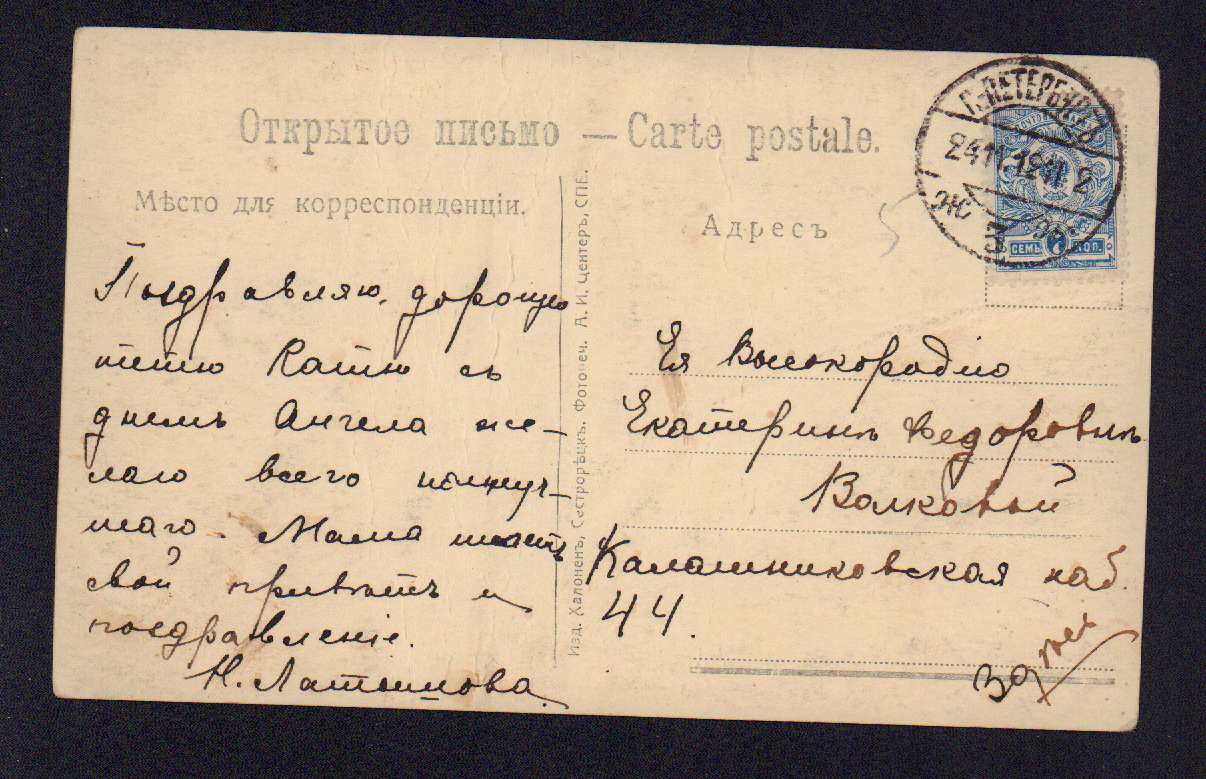 Открытое письмо — Carte postale.
Мѣсто для корреспонденціи.
Поздравляю, дорогую
тетю Катю съ
днемъ Ангела же-
лаю всего наилуч-
шаго. Мама шлетъ
свой привѣтъ и
поздравленіе.
Н. Латышова
Изд. Халоненъ, Сестрорѣцкъ. Фотопеч. А. И. Центеръ, СПБ.
С.-ПЕТЕРБУРГЪ
24 11. 12
3
СЕМЬ 7 КОП.
Адресъ
Ея Высокородію
Екатеринѣ Федоровнѣ
Волковой
Калашниковская наб.
44.
Здѣсь